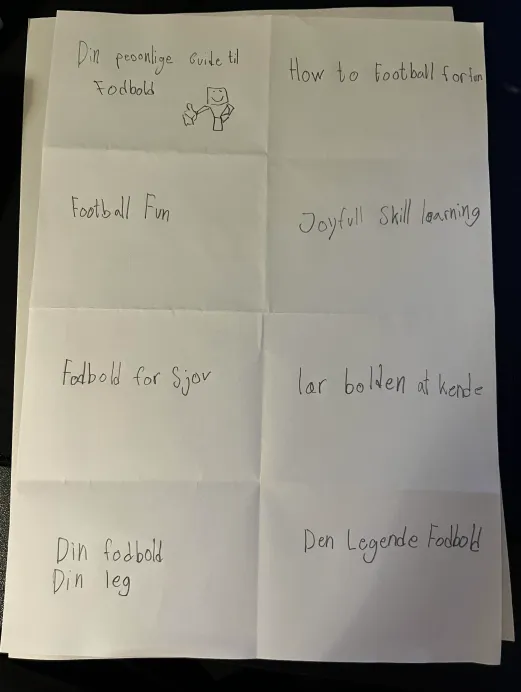 Din peoonlige Guide til
Fodbold
How to Football for fun
Football Fun
Joyfull Skill learning
Fodbold for Sjov
lar bolden at kende
Din fodbold
Din leg
Den Legende Fodbold